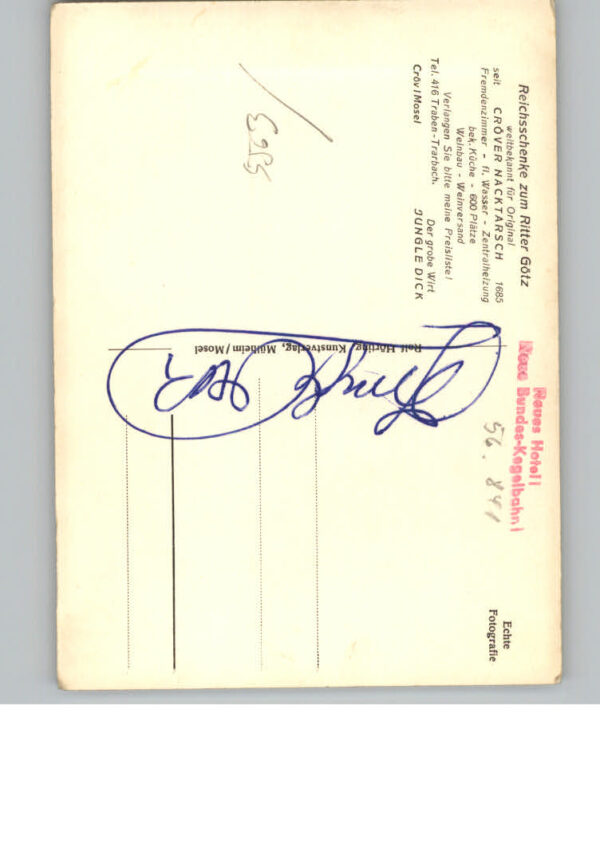 Reichsschenke zum Ritter Götz
weltbekannt für Original
seit CRÖVER NACKTARSCH 1685
Fremdenzimmer - fl. Wasser - Zentralheizung
bek. Küche - 600 Plätze
Weinbau - Weinversand
Verlangen Sie bitte meine Preisliste!
Tel. 416 Traben-Trarbach. Der grobe Wirt
Cröv/Mosel JUNGLE DICK
Neues Hotel!
Neue Bundes-Kegelbahn!
56.841
Echte
Fotografie
Ralf Hörting, Kunstverlag, Mülheim/Mosel